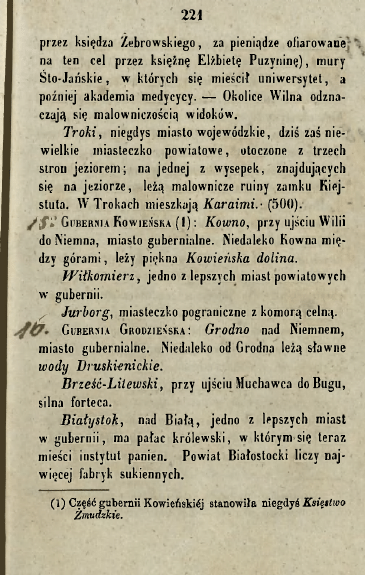 221
przez księdza Żebrowskiego, za pieniądze ofiarowane
na ten cel przez księżnę Elżbietę Puzyninę), mury
Sto-Jańskie, w których się mieścił uniwersytet, a
poźniej akademia medycycy. — Okolice Wilna odzna-
czają się malowniczością widoków.
Troki, niegdys miasto wojewódzkie, dziś zaś nie-
wielkie miasteczko powiatowe, otoczone z trzech
stron jeziorem; na jednej z wysepek, znajdujących
się na jeziorze, leżą malownicze ruiny zamku Kiej-
stuta. W Trokach mieszkają Karaimi. (500).
15. Gubernia Kowieńska (1): Kowno, przy ujściu Wilii
do Niemna, miasto gubernialne. Niedaleko Kowna mię-
dzy górami, leży piękna Kowieńska dolina.
Wiłkomierz, jedno z lepszych miast powiatowych
w gubernii.
Jurborg, miasteczko pograniczne z komorą celną.
16. Gubernia Grodzieńska: Grodno nad Niemnem,
miasto gubernialne. Niedaleko od Grodna leżą sławne
wody Druskienickie.
Brześć-Litewski, przy ujściu Muchawca do Bugu,
silna forteca.
Białystok, nad Białą, jedno z lepszych miast
w gubernii, ma pałac królewski, w którym się teraz
mieści instytut panien. Powiat Białostocki liczy naj-
więcej fabryk sukiennych.
(1) Część gubernii Kowieńskiéj stanowiła niegdyś Księstwo
Żmudzkie.